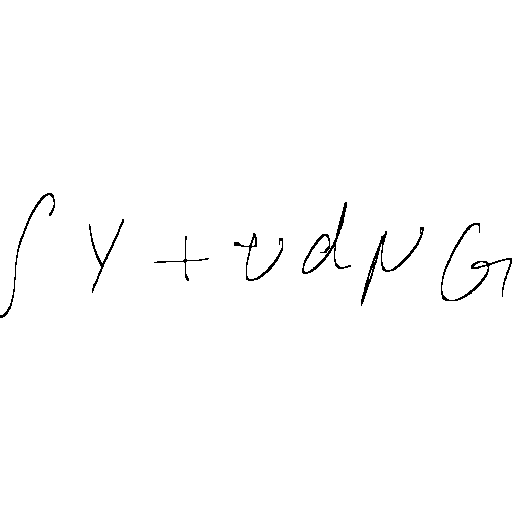 ∫ y + v d μ G